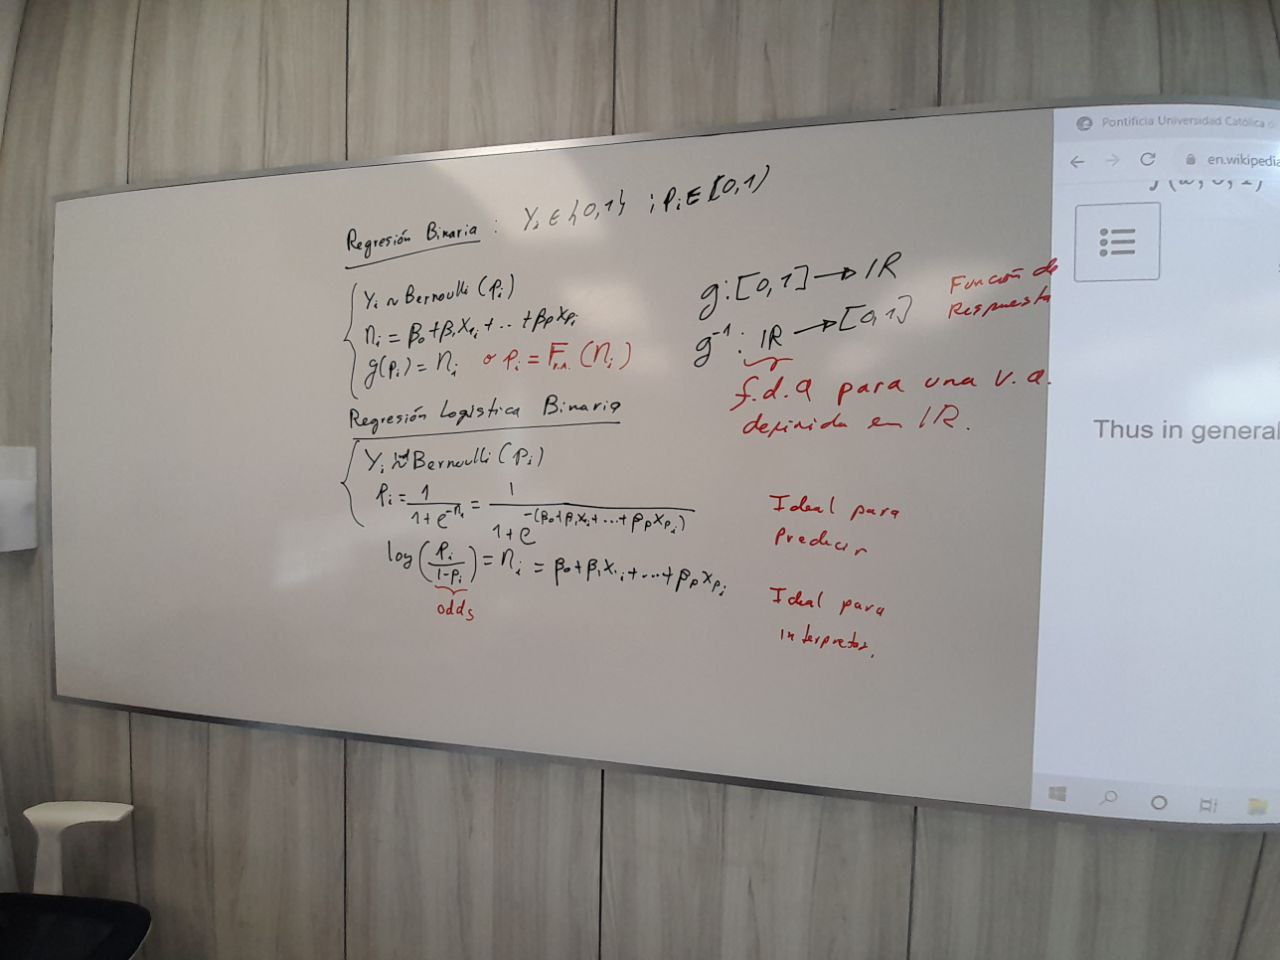 Regresión Binaria : Yi ∈ {0,1} ; Pi ∈ [0,1)
Yi ~ Bernoulli (Pi)
ηi = β0 + β1 X1i + .. + βp Xpi
g(pi) = ηi o Pi = F (ηi)
g: [0,1] → IR
g⁻¹: IR → [0,1]
Función de
Respuesta
f.d.a para una v.a.
definida en IR.
Regresión Logística Binaria
Yi ~ Bernoulli (Pi)
Pi = 1/(1+e^-ηi) = 1/(1+e^-(β0+β1X1i+...+βpXpi))
Ideal para
predecir
log(Pi/(1-Pi)) = ηi = β0 + β1 X1i + ... + βp Xpi
odds
Ideal para
interpretar.
Pontificia Universidad Católica
en.wikipedia
Thus in general